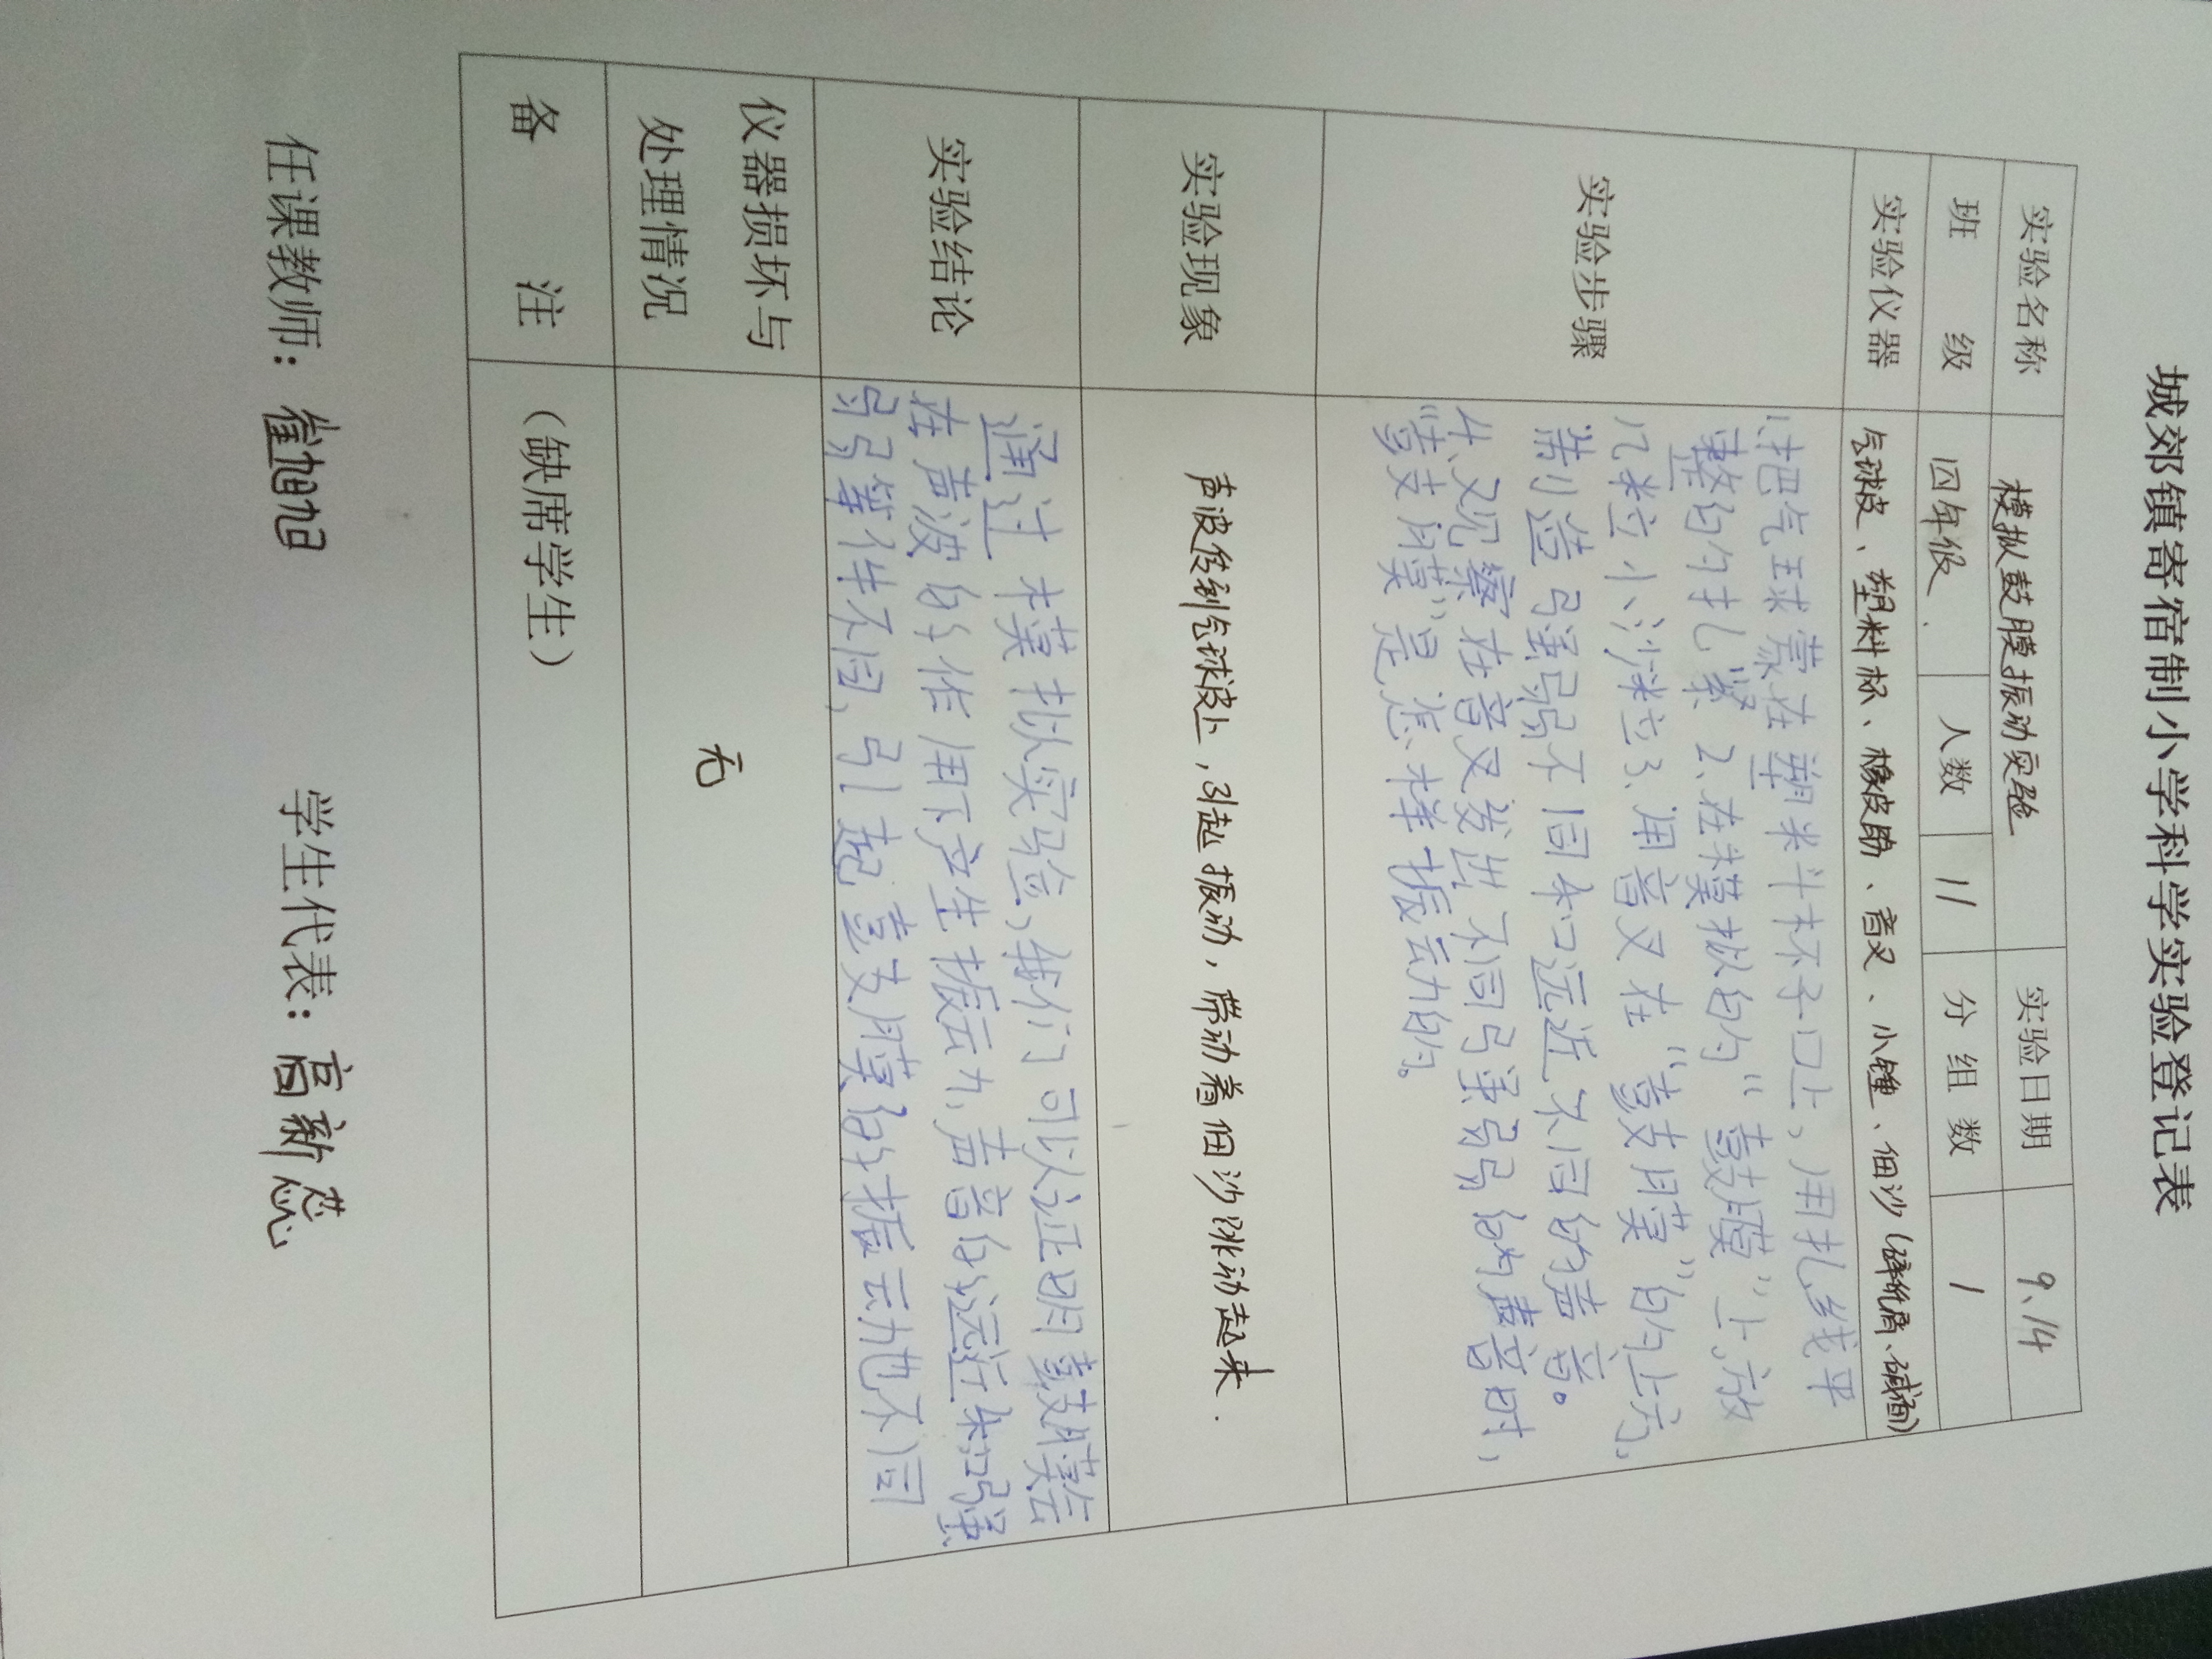 城郊镇寄宿制小学科学实验登记表
实验名称 模拟鼓膜振动实验 实验日期 9.14
班 级 四年级. 人数 11 分组数 1
实验仪器 气球皮、塑料杯、橡皮筋、音叉、小锤、细沙(碎纸屑、碱面)
实验步骤
1.把气球蒙在塑料杯子口上,用扎线平
整的扎紧 2、在模拟的“鼓膜”上放
几粒小沙粒 3、用音叉在“鼓膜”的上方,
制造强弱不同和远近不同的声音。
4、观察在音叉发出不同强弱的声音时,
“鼓膜”是怎样振动的。
实验现象 声波传到气球皮上,引起振动,带动着细沙跳动起来.
实验结论
通过模拟实验,我们可以证明鼓膜会
在声波的作用下产生振动,声音的远近和强
弱等件不同,引起鼓膜的振动也不同
仪器损坏与
处理情况 无
备 注 (缺席学生)
任课教师: 崔旭旭 学生代表: 高新蕊